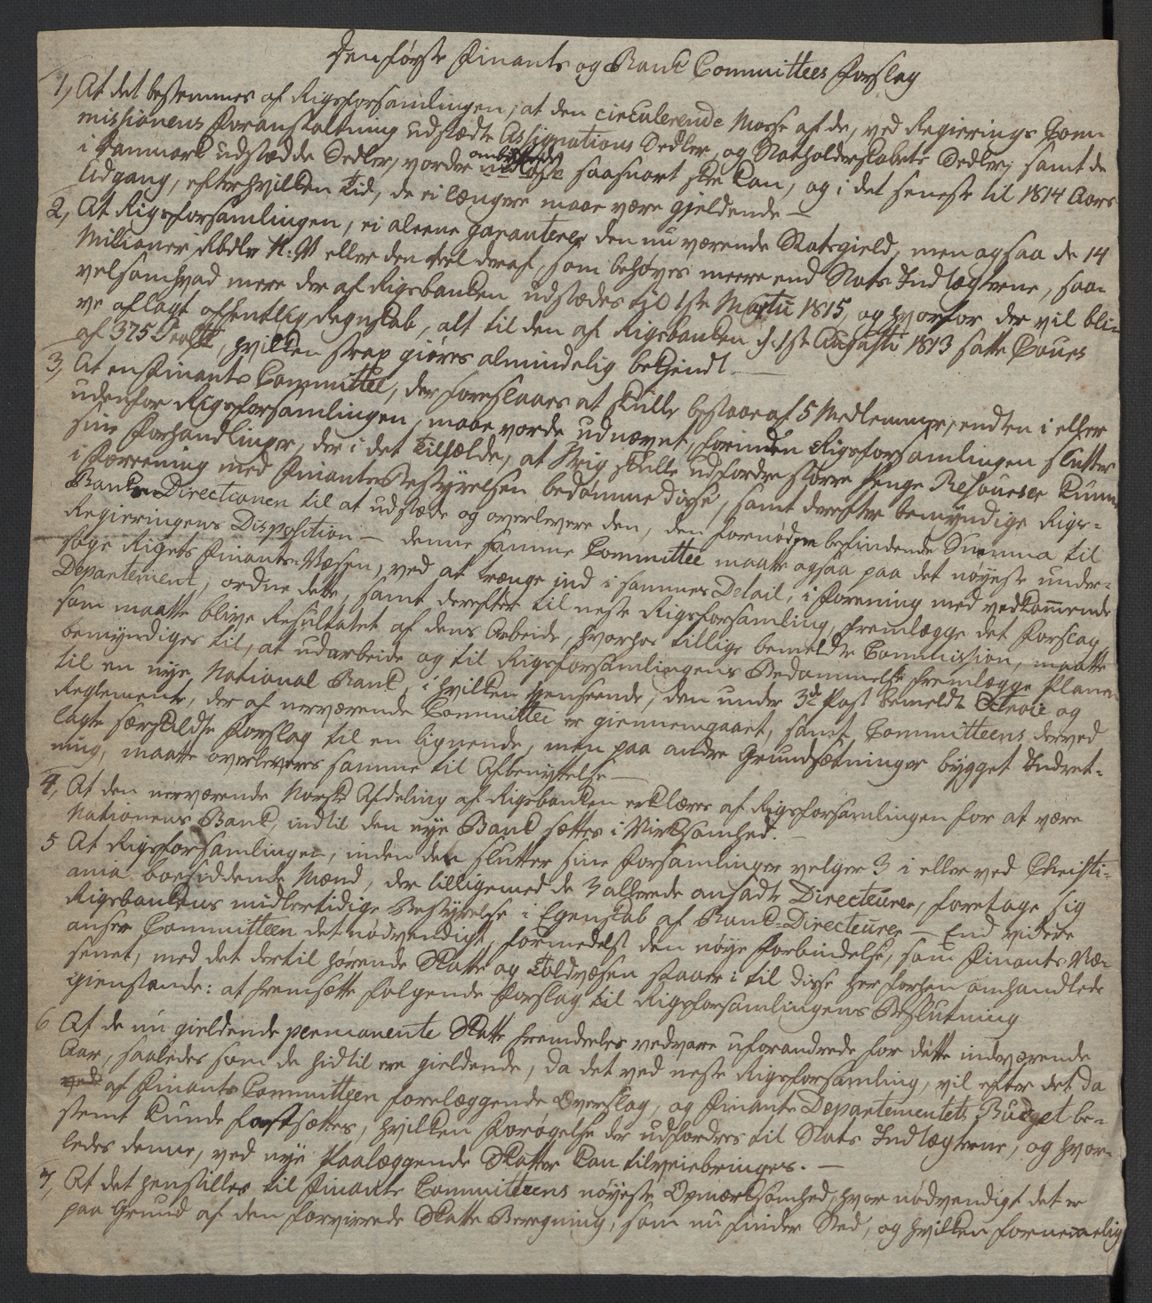 Den første Finants og Bank Committees Forslag
1, At det bestemmes af Rigsforsamlingen, at den circulerende Masse af de, ved Regierings Com-
missionens Foranstaltning udstædte Assignations Sedler, og Statholderskabets Sedler, samt de
i Danmark udstædde Sedler, vorder ombyttede saasnart skee kan, og i det seneste til 1814 Aars
Udgang, efter hvilken Tid, de ei længere maae være gjeldende —
2, At Rigsforsamlingen, ei aleene garanterer den nu værende Statsgield, men ogsaa de 14
Millioner Rbdlr N. V. eller den Deel deraf, som behøves meere end Stats Indtægterne, saa-
velsom hvad mere der af Rigsbanken udstædes til 1ste Martii 1815, og hvorfor der vil bli-
ve aflagt offentlig Regnskab, alt til den af Rigsbanken d. 1ste Augusti 1813 satte Cours
af 375 Procto, hvilken strax giøres almindelig bekjendt. —
3, At en Finants Committee, der foreslaaes at skulle bestaae af 5 Medlemmer, endten i eller
udenfor Rigsforsamlingen, maae vorde udnævnt, forinden Rigsforsamlingen slutter
sine Forhandlinger, der i det Tilfælde, at Krig skulle udfordre større Penge Resourcer kunne
i Foreening med Finantsbestyrelsen bedømme disse, samt derefter bemyndige Rigs-
Banke Directionen til at udstæde og overlevere den, den fornøden befindende Summa til
Regieringens Disposition — denne samme Committee maatte ogsaa paa det nøyeste under-
søge Rigets Finants-Væsen, ved at trænge ind i sammes Detail, i Forening med vedkommende
Departement, ordne dette, samt derefter til neste Rigsforsamling, fremlægge det Forslag,
som maatte blive Resultatet af dens Arbeide, hvorhos tillige bemeldte Commission, maatte
bemyndiges til, at udarbeide og til Rigsforsamlingens Bedømmelse fremlægge Planen
til en nye National Bank, i hvilken Henseende, den under 3de Post bemeldte og
Reglemente, der af nerværende Committee er giennemgaaet, samt Committeens derved
lagte særskildte Forslag til en lignende, men paa andre Grundsætninger bygget Indret-
ning, maatte overleveres samme til Afbenyttelse —
4, At den nerværende Norske Afdeling af Rigsbanken erklæres af Rigsforsamlingen for at være
Nationens Bank, indtil den nye Bank sættes i Virksomhed. —
5 At Rigsforsamlingen, inden den slutter sine Forsamlinger velger 3 i eller ved Christi-
ania boesiddende Mænd, der tilligemed de 3 allerede ansadte Directeurer, foretage sig
Rigsbankens midlertidige Bestyrelse i Egenskab af Bank-Directeurer — End videre
anser Committeen det nødvendigt, formedelst den nøye Forbindelse, som Finants Væ-
senet, med det dertil hørende Skatte og Toldvæsen staaer i til disse her forhen omhandlede
gienstande: at fremsætte følgende Forslag til Rigsforsamlingens Beslutning
6 At de nu gieldende permanente Skatte fremdeles vedvare uforandrede for dette indværende
Aar, saaledes som de hidtil ere gieldende, da det ved neste Rigsforsamling, vil efter det da
af Finants Committeen forelæggende Overslag, og Finants Departementets Budget be-
stemt kunde fastsættes, hvilken Forøgelse der udfordres til Stats Indtægterne, og hvor-
ledes denne, ved nye Paalæggende Skatter kan tilveiebringes. —
7, At det henstilles til Finants Committeens nøyeste Opmærksomhed, hvor nødvendigt det er
paa Grund af den forvirrede Skatte Beregning, som nu finder Sted, og hvilken fornemmelig